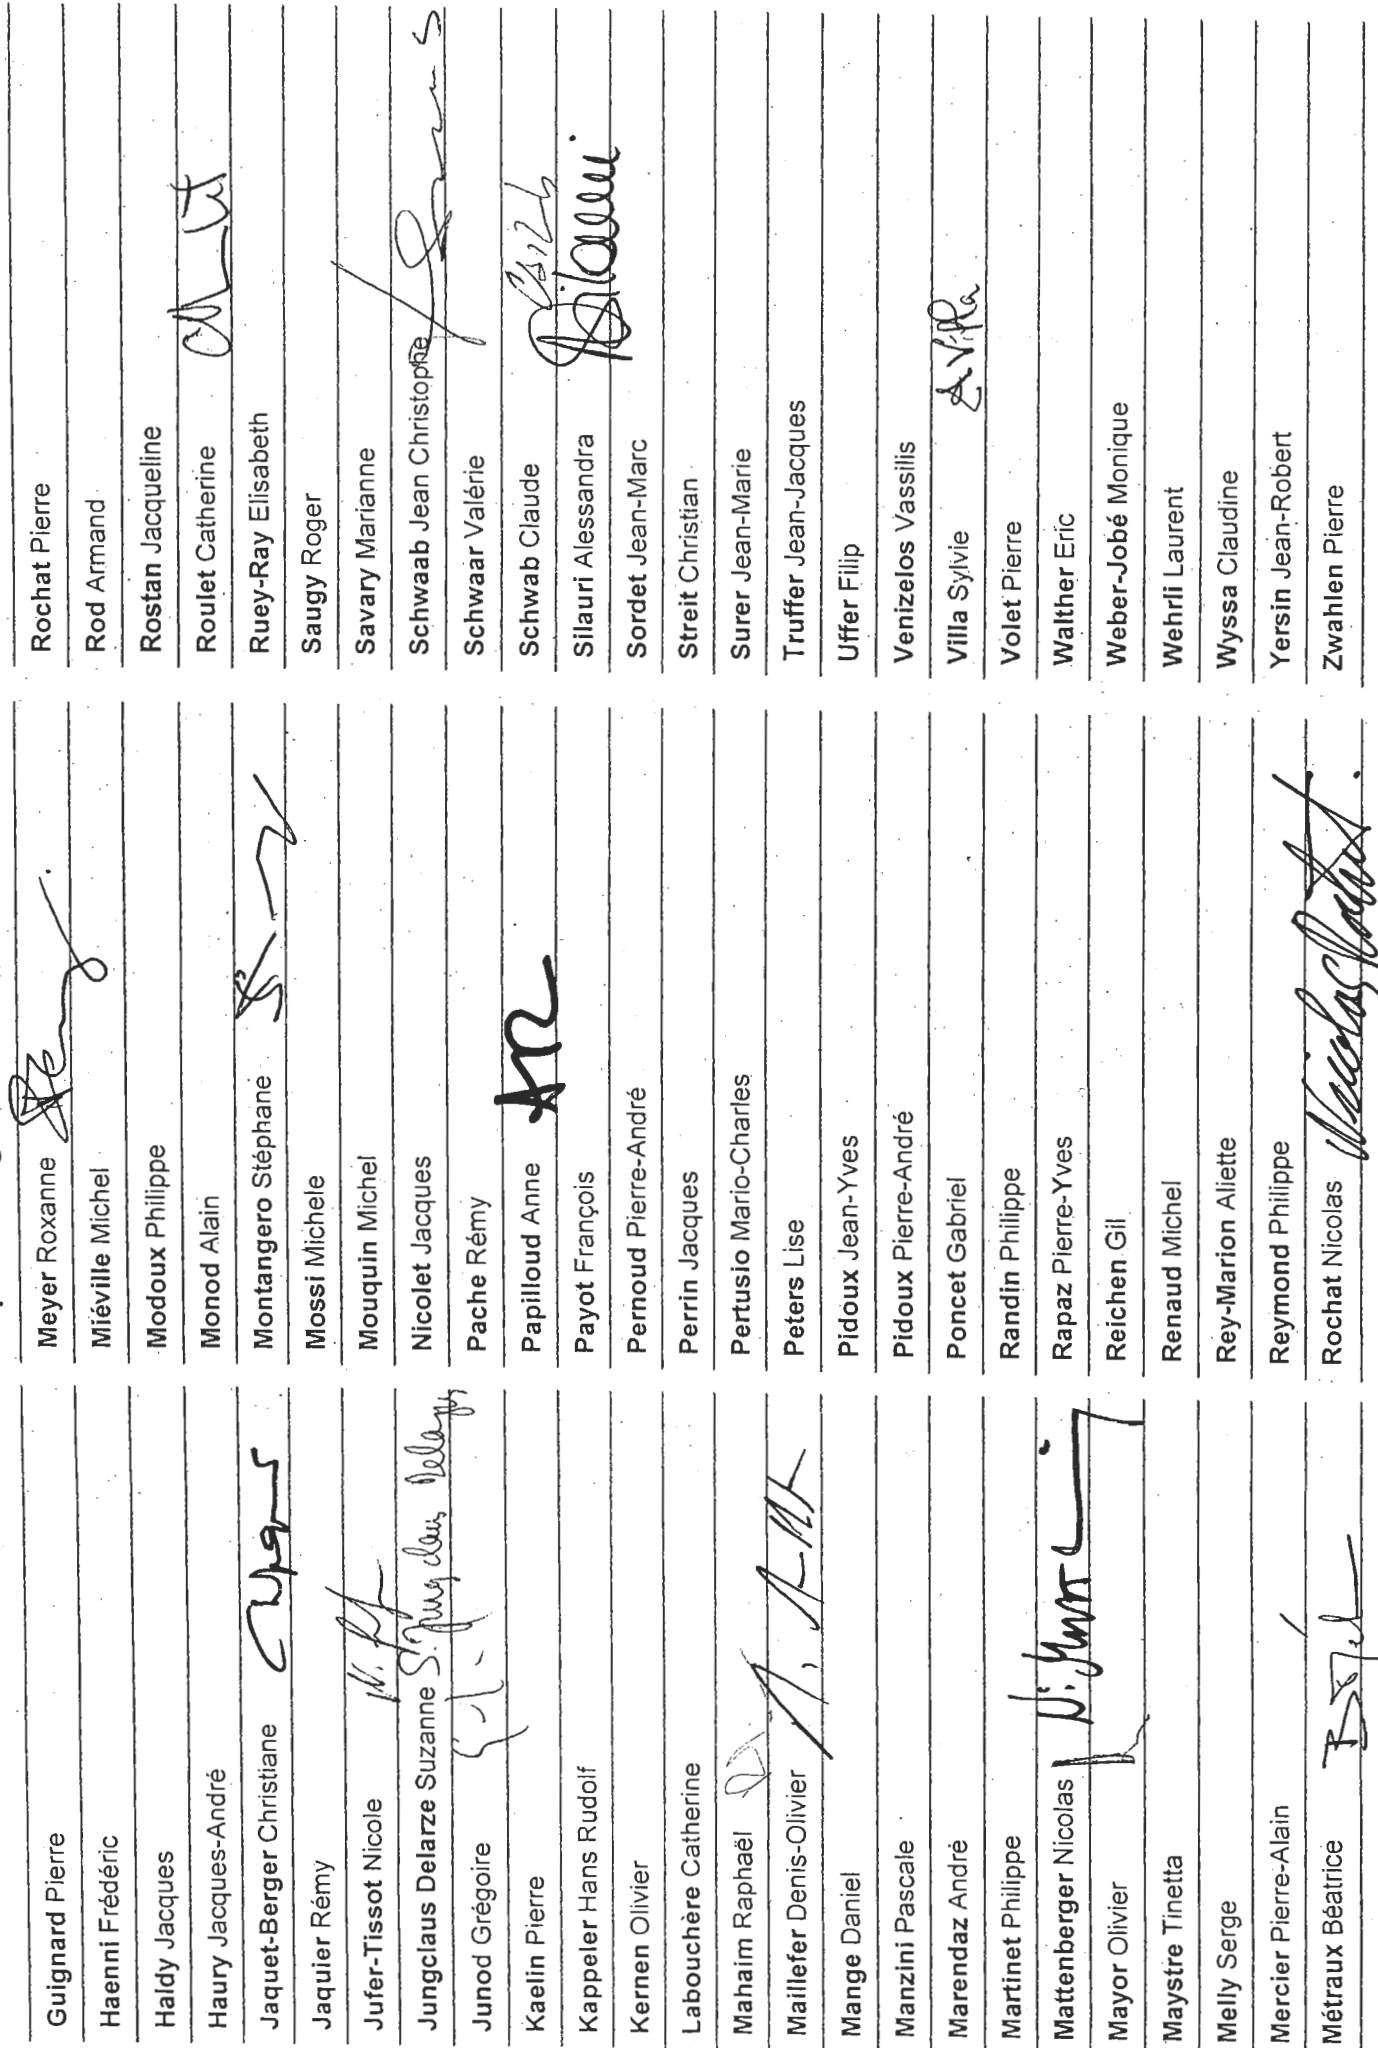 Guignard Pierre
Haenni Frédéric
Haldy Jacques
Haury Jacques-André
Jaquet-Berger Christiane
Jaquier Rémy
Jufer-Tissot Nicole
Jungclaus Delarze Suzanne S. Jungclaus Delarze
Junod Grégoire
Kaelin Pierre
Kappeler Hans Rudolf
Kernen Olivier
Labouchère Catherine
Mahaim Raphaël
Maillefer Denis-Olivier
Mange Daniel
Manzini Pascale
Marendaz André
Martinet Philippe
Mattenberger Nicolas
Mayor Olivier
Maystre Tinetta
Melly Serge
Mercier Pierre-Alain
Métraux Béatrice
Meyer Roxanne
Miéville Michel
Modoux Philippe
Monod Alain
Montangero Stéphane
Mossi Michele
Mouquin Michel
Nicolet Jacques
Pache Rémy
Papilloud Anne
Payot François
Pernoud Pierre-André
Perrin Jacques
Pertusio Mario-Charles
Peters Lise
Pidoux Jean-Yves
Pidoux Pierre-André
Poncet Gabriel
Randin Philippe
Rapaz Pierre-Yves
Reichen Gil
Renaud Michel
Rey-Marion Aliette
Reymond Philippe
Rochat Nicolas Nicolas Rochat
Rochat Pierre
Rod Armand
Rostan Jacqueline
Roulet Catherine
Ruey-Ray Elisabeth
Saugy Roger
Savary Marianne
Schwaab Jean Christophe
Schwaar Valérie
Schwab Claude
Silauri Alessandra Silauri
Sordet Jean-Marc
Streit Christian
Surer Jean-Marie
Truffer Jean-Jacques
Uffer Filip
Venizelos Vassilis
Villa Sylvie S. Villa
Volet Pierre
Walther Eric
Weber-Jobé Monique
Wehrli Laurent
Wyssa Claudine
Yersin Jean-Robert
Zwahlen Pierre